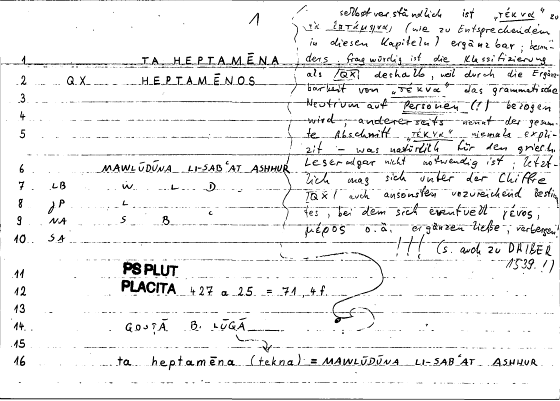 1
selbstverständlich ist "τέκνα" zu
τὰ ἑπτάμηνα (wie zu Entsprechendem
in diesen Kapiteln) ergänzbar; beson
ders fragwürdig ist die Klassifizierung
als |QX| deshalb, weil durch die Ergänz
barkeit von "τέκνα" das grammatische
Neutrum auf Personen (!) bezogen
wird; andererseits nennt der gesam
te Abschnitt "τέκνα" niemals expli
zit – was natürlich für den griech.
Leser aber nicht notwendig ist; letzt
lich mag sich unter der Chiffre
|QX| auch ansonsten unzureichend Bestimm
tes, bei dem sich eventuell γένος,
μέρος o.ä. ergänzen ließe, verbergen
!!! (s. auch zu DAIBER
1539.!)
1 TA HEPTAMĒNA
2 QX HEPTAMĒNOS
3
4
5
6 MAWLŪDŪNA LI-SABʿAT ASHHUR
7 LB W L D
8 JP L
9 NA S B ʿ
10 SA
11 PS PLUT
12 PLACITA 427 a 25 = 71, 4f.
13
14 QOSṬĀ B. LŪQĀ
15
16 ta heptamēna (tekna) = MAWLŪDŪNA LI-SABʿAT ASHHUR